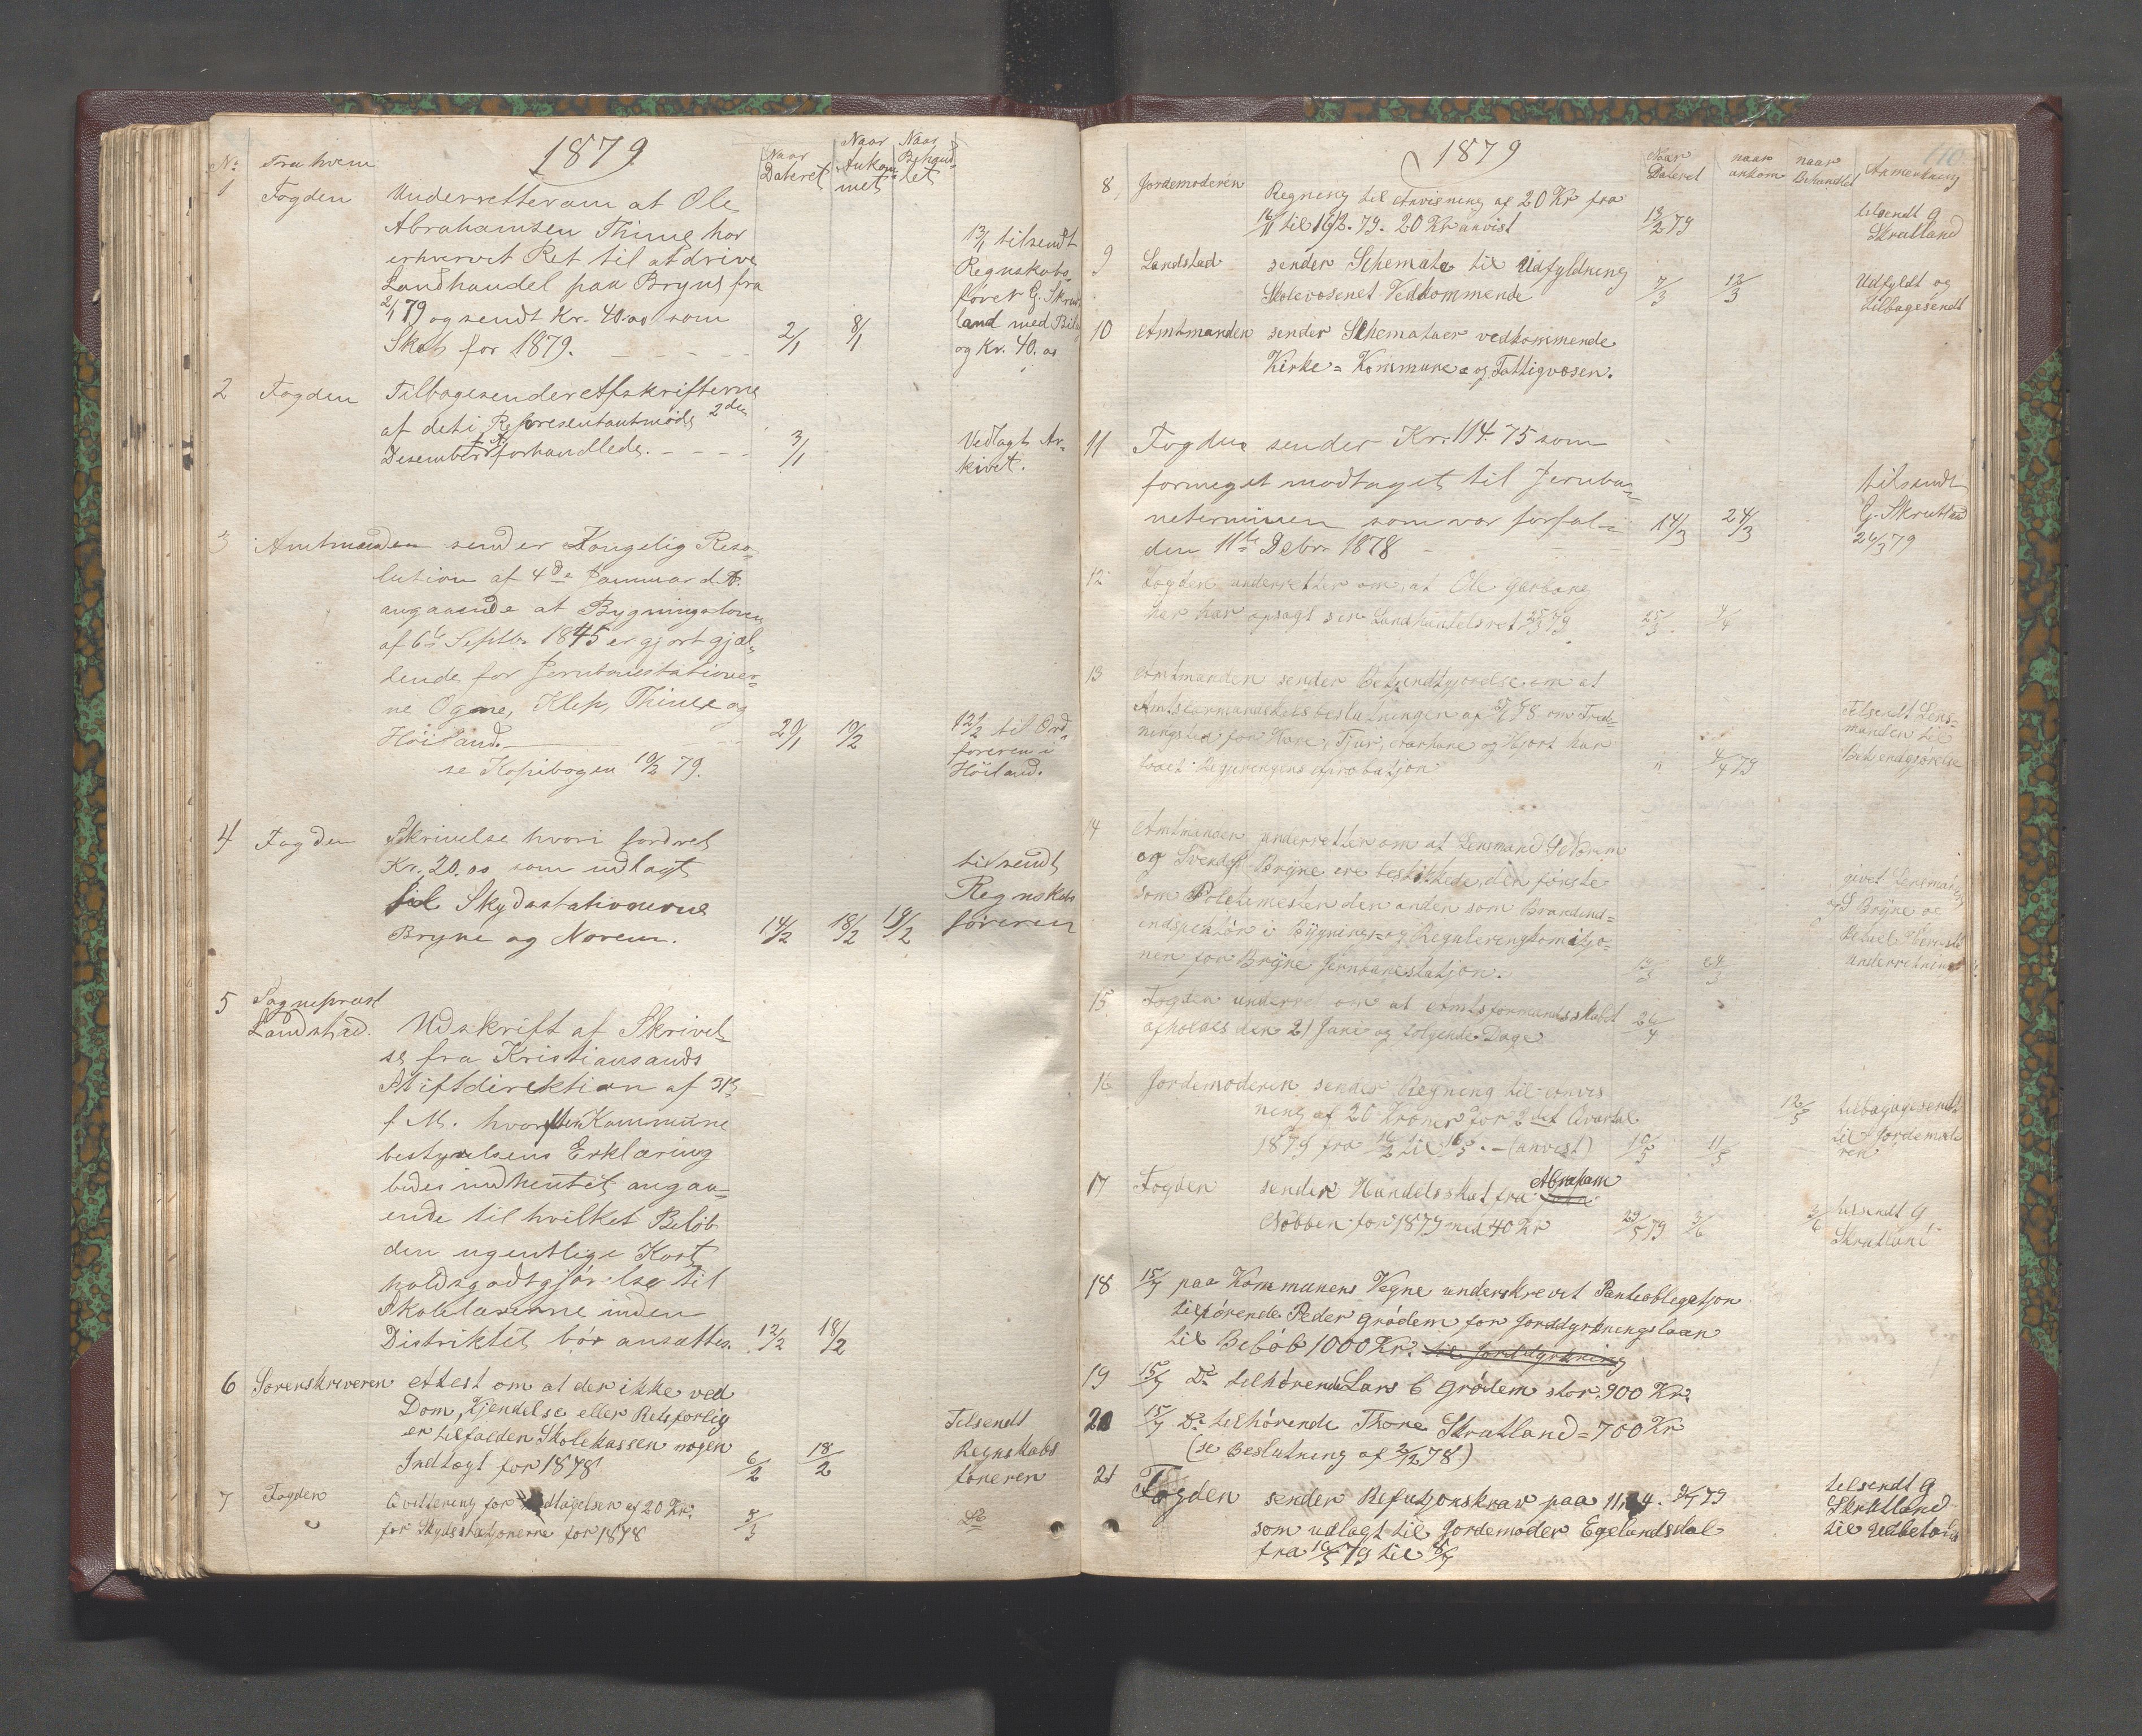 1879
No Fra hvem Naar Dateret Naar Ankommet Naar Behandlet
1 Fogden Underretter om at Ole
Abrahamsen Thime har
erhvervet Ret til at drive
Landhandel paa Bryne fra
2/1 79 og sendt Kr. 40.00 som
Skat for 1879. 2/1 8/1
13/1 tilsendt
Regnskabs-
fører G. Skrut-
land med Bilag
og Kr. 40.00
2 Fogden Tilbagesender Afskrifterne
af det i Representantmøde 2den
Desember f. A. forhandlede. 3/1
Vedlagt Ar-
kivet.
3 Amtmanden sender Kongelig Reso-
lution af 4de Januar d. A.
angaaende at Bygningsloven
af 6te Septbr 1845 er gjort gjæl-
dende for Jernbanestationer-
ne Ogne, Klep, Thime og
Høiland. 29/1 10/2
se Kopibogen 10/2 79.
12/2 til Ord-
føreren i
Høiland.
4 Fogden Skrivelse hvori fordret
Kr. 20.00 som udlagt
til Skydsstationerne
Bryne og Norem. 14/2 18/2 19/2
tilsendt
Regnskabs
føreren
5 Sogneprest
Landstad. Udskrift af Skrivel-
se fra Kristiansands
Stiftdirektion af 31te
f. M. hvorefter Kommune
bestyrelsens Erklæring
bedes indhentet angaa-
ende til hvilket Beløb
den ugentlige Kost
holdsgodtgjørelse til
Skolelærerne inden
Distriktet bør ansættes. 12/2 18/2
6 Sorenskriveren Attest om at der ikke ved
Dom, Kjendelse eller Retsforlig
er tilfalden Skolekassen nogen
Indtægt for 1878 6/2 18/2
Tilsendt
Regnskabs
føreren
7 Fogden Qvittering for Modtagelsen af 20 Kr.
for Skydsstationerne for 1878 8/3 Do
1879
110
Naar Dateret naar ankom naar Behandlet Anmerkning
8 Jordemoderen Regning til Anvisning af 20 Kr fra
16/11 til 16/2. 79. 20 Kr anvist 13/2 79
tilsendt G
Skrutland
9 Landstad sender Schemata til Udfyldning
Skolevæsenet Vedkommende 7/3 12/3
Udfyldt og
tilbagesendt
10 Amtmanden sender Schemataer vedkommende
Kirke- Kommune- og Fattigvæsen.
11 Fogden sender Kr. 114.75 som
formeget modtaget til Jernba-
neterminen som var forfal-
den 11te Debr 1878 14/3 24/3
tilsendt
G. Skrutland
26/3 79
12 Fogden underretter om, at Ole Garborg
har har opsagt sin Landhandelsret 25/3 79 25/3 4/4
13 Amtmanden sender Bekjendtgjørelse om at
Amtsformandskabsbeslutningen af om Fred-
ningstid for Hare, Tjur, Aarhane og Hjort har
faaet Regjeringens Aprobatjon " 4/4 79
Tilsendt Lens-
manden til
Bekjendtgjørelse
14 Amtmanden underretter om at Lensmand Norem
og Svend Bryne ere beskikkede, den første
som Politimester den anden som Brandind-
indspektør i Bygnings- og Reguleringskomitsjo-
nen for Bryne Jernbanestatjon.
givet Lensmanden
og S Bryne
underretning
15 Fogden underret om at Amtsformandsskabet
afholdes den 21 Juni og følgende Dage 26/4
16 Jordemoderen sender Regning til Anvis
ning af 20 Kroner for 2det Qvartal
1879 fra 16/2 til 16/5. - (anvist) 10/5 11/5 12/5
tilbagagesendt
til Jordemode
ren
17 Fogden sender Handelsskat fra Abraham
Obben for 1879 med 40 Kr 29/5 79 3/6 3/6
tilsendt G
Skrutland
18 15/7 paa Kommunens Vegne underskrevet Panteobligatjon
tilhørende Peder Grødem for Jorddyrkningslaan
til Beløb 1000 Kr. til Jorddyrkning
19 15/7 Do tilhørende Lars C Grødem stor. 900 Kr.
20 15/7 Do tilhørende Thore Skrutland = 700 Kr
(se Beslutning af 2/12 78.)
21 Fogden sender Refutjonskrav paa 79
som udlagt til Jordemoder Egelandsdal
fra 16/5 79 til
tilsendt G
Skrutland
til Udbetaling